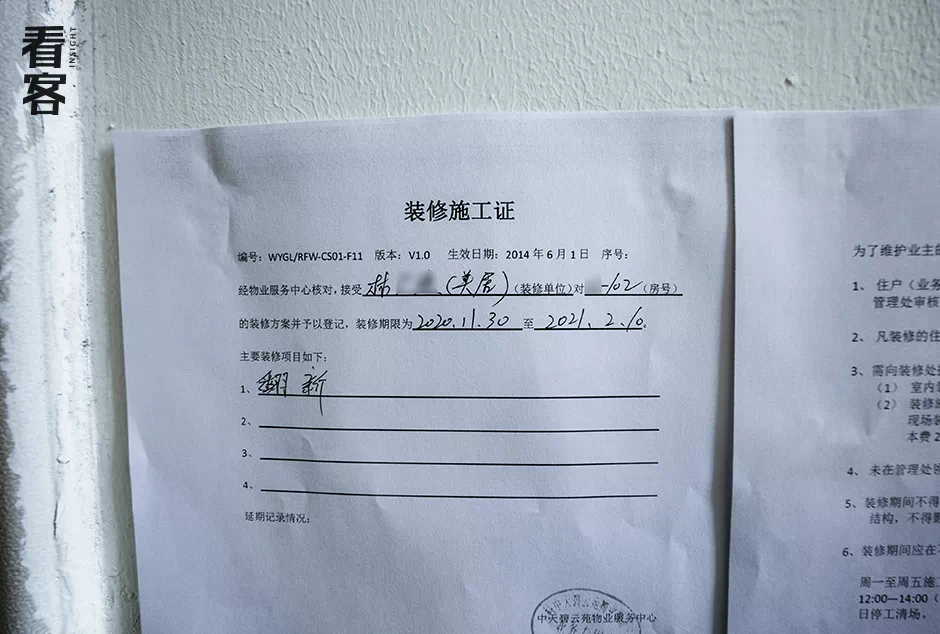 看客
INSIGHT
装修施工证
编号：WYGL/RFW-CS01-F11 版本：V1.0 生效日期：2014 年 6 月 1 日 序号：
经物业服务中心核对，接受 林 （美居）（装修单位）对 -102（房号）
的装修方案并予以登记，装修期限为 2020.11.30 至 2021.2.10。
主要装修项目如下：
1、翻新
2、
3、
4、
延期记录情况：
中天碧云苑物业服务中心
为了维护业主的
1、 住户（业务
管理处审核
2、 凡装修的住
3、 需向装修处
（1） 室内
（2） 装修
现场装
本费 2
4、 未在管理处领
5、 装修期间不得
结构，不得影
6、 装修期间应在
周一至周五施工
12:00—14:00（
日停工清场，